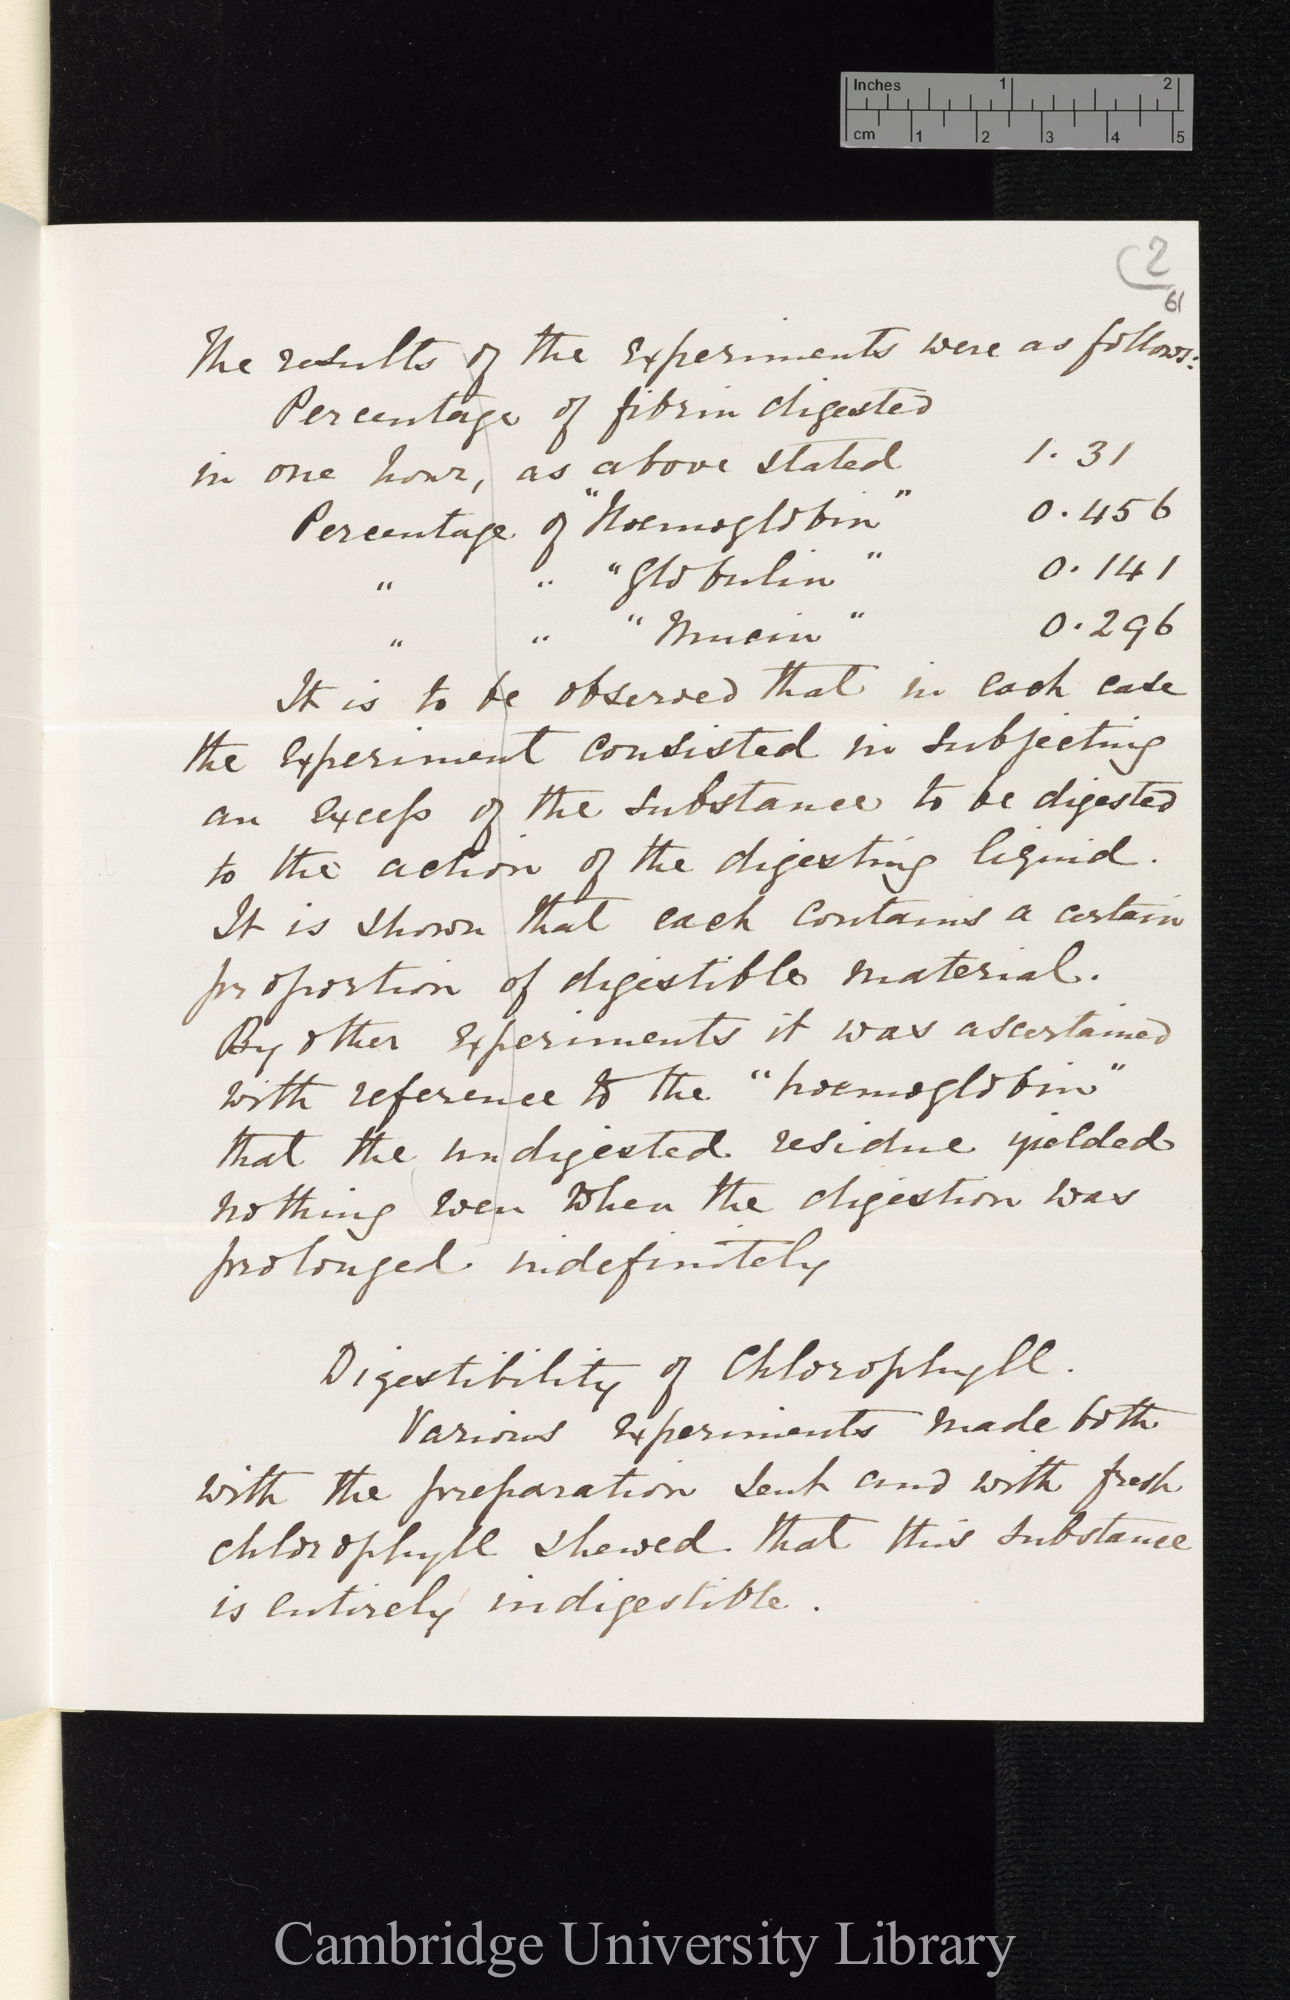 Inches 1 2
cm 1 2 3 4 5
2
61
The results of the Experiments were as follows:
Percentage of fibrin digested
in one hour, as above stated 1.31
Percentage of "Hoemoglobin" 0.456
" " "Globulin" 0.141
" " "Mucin" 0.296
It is to be observed that in each case
the Experiment consisted in subjecting
an Excess of the substance to be digested
to the action of the digesting liquid.
It is shown that each contains a certain
proportion of digestible material.
By other Experiments it was ascertained
with reference to the "hoemoglobin"
that the undigested residue yielded
nothing even when the digestion was
prolonged indefinitely
Digestibility of Chlorophyll.
Various Experiments made both
with the preparation sent and with fresh
chlorophyll shewed that this substance
is entirely indigestible.
Cambridge University Library